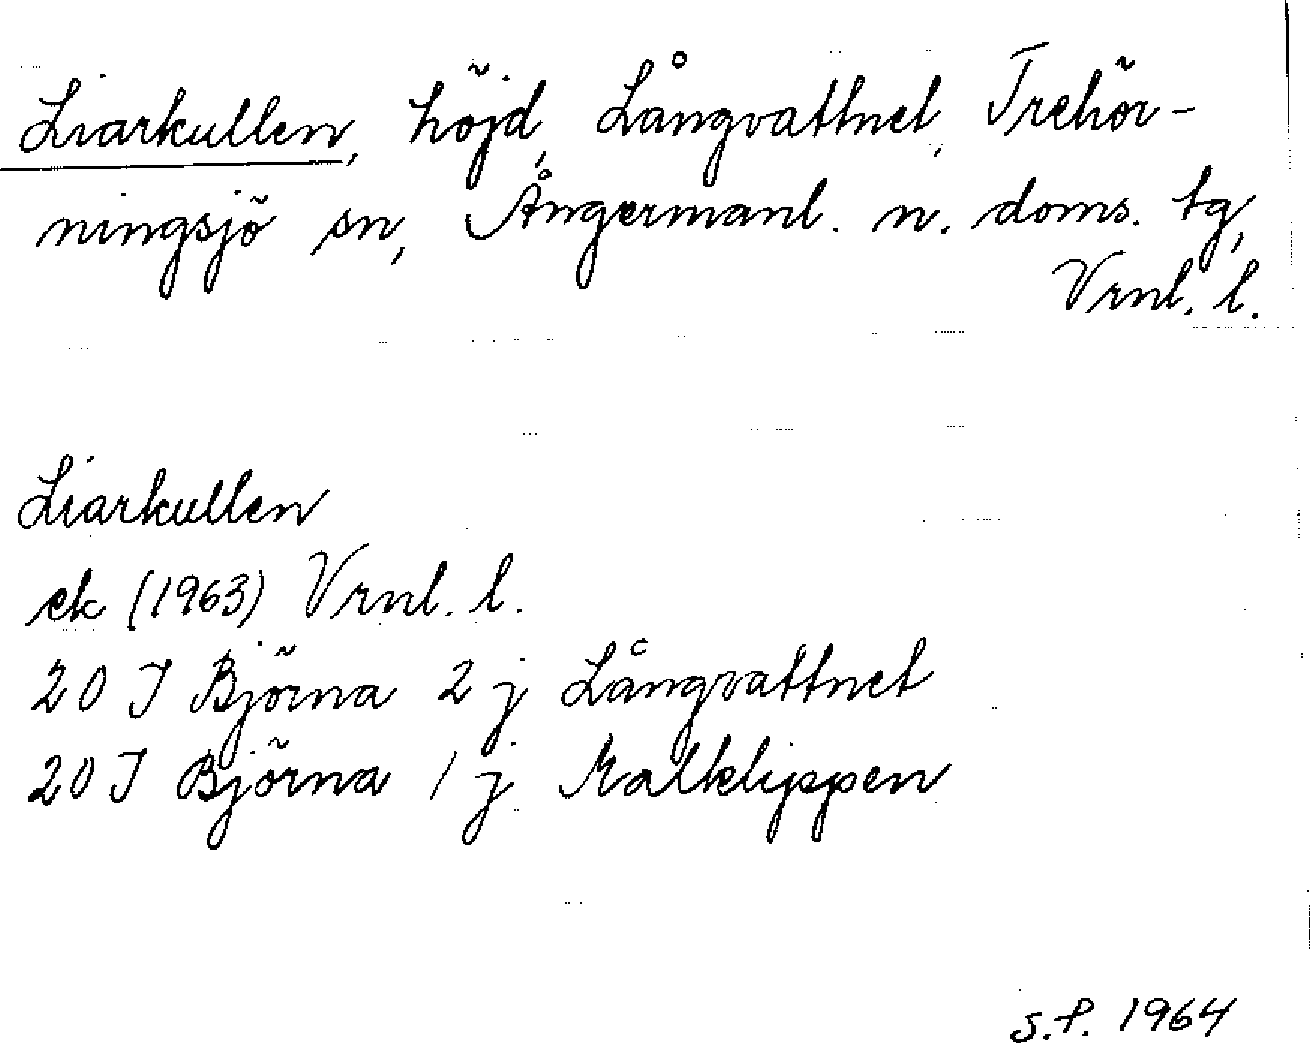 Liarkullen, höjd, Långvattnet, Trehör-
ningsjö sn, Ångermanl. n. doms. tg,
Vrnl. l.
Liarkullen
ek (1963) Vrnl. l.
20 J Björna 2 j Långvattnet
20 J Björna 1 j Malklippen
S.P. 1964